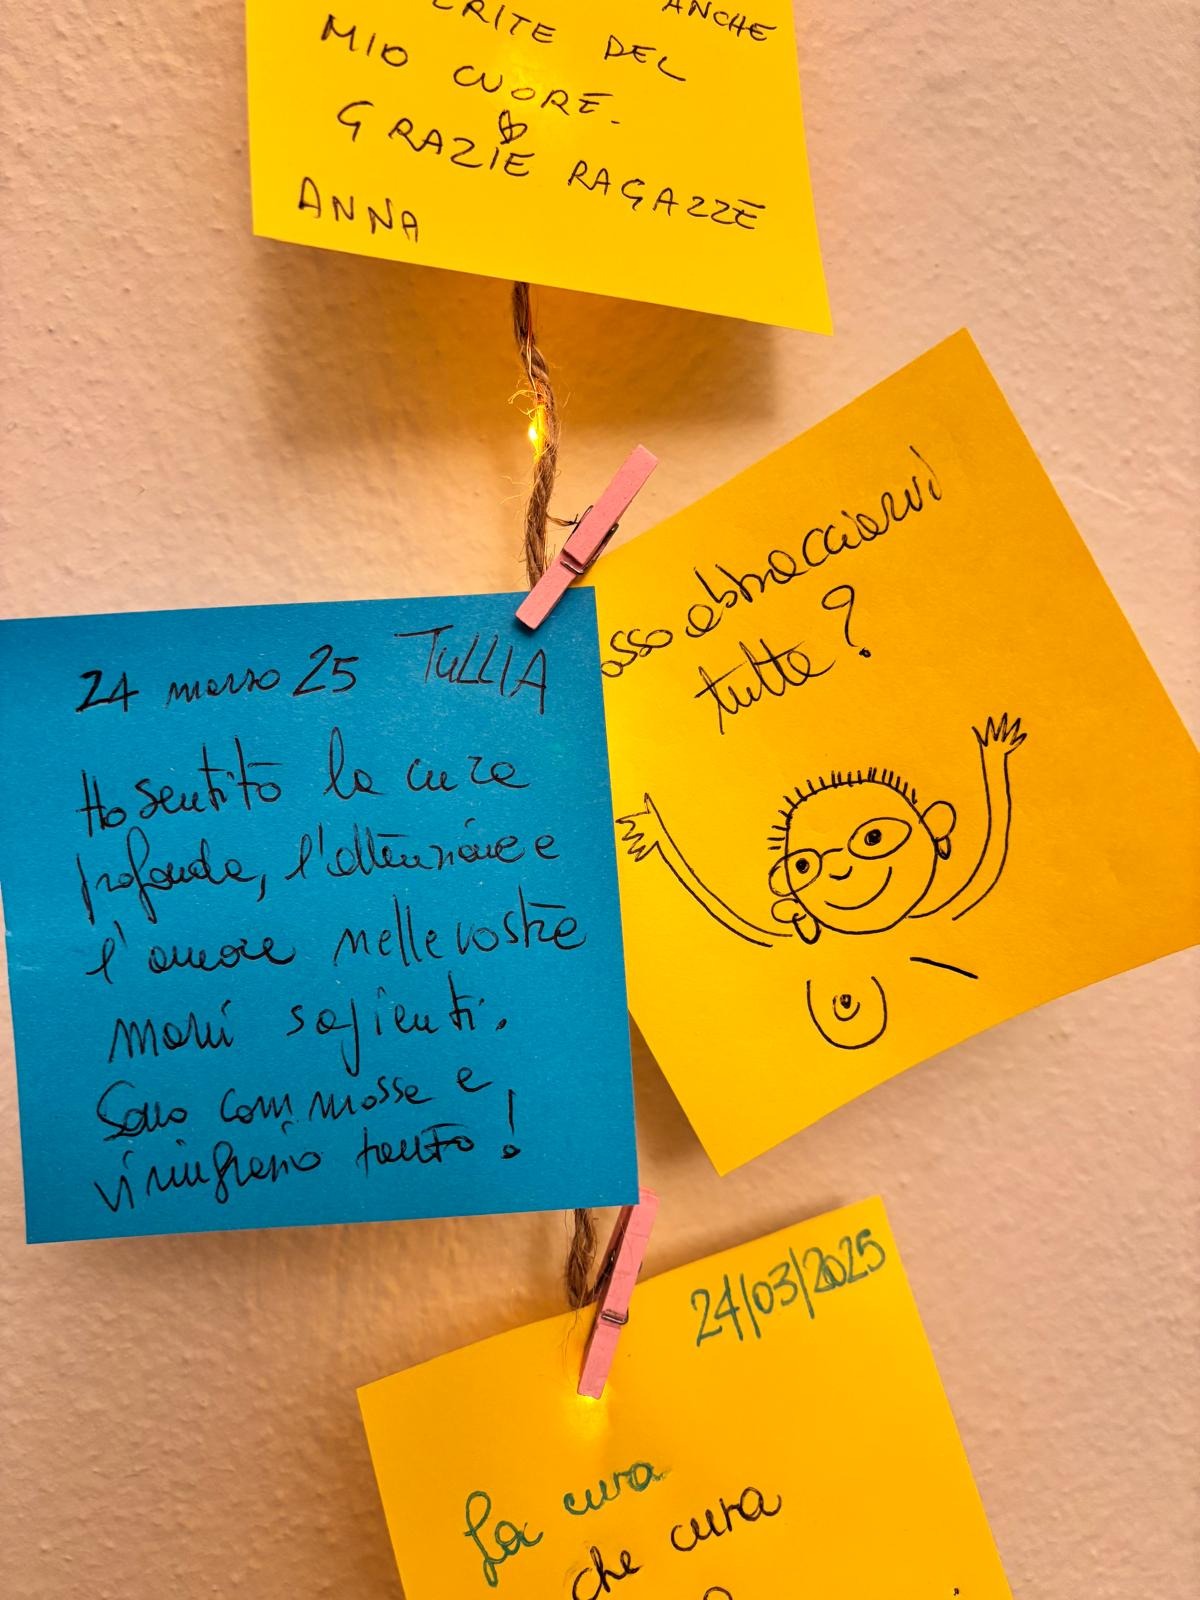 ANCHE
DEL
MIO CUORE.
GRAZIE RAGAZZE
ANNA
abbracciarvi
tutte?
24 marzo 25 TULLIA
Ho sentito la cura
profonda, l'attenzione e
l'amore nelle vostre
mani sapienti.
Sono commossa e
vi ringrazio tanto!
24/03/2025
La cura
che cura